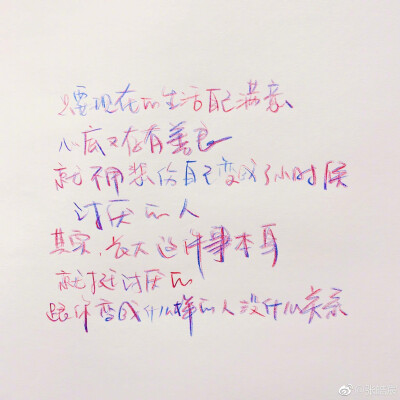 只要现在的生活自己满意
心底又存有善良
就不用装作自己变成了小时候
讨厌的人
其实,长大这件事本身
就挺讨厌的
跟你变成什么样的人没什么关系